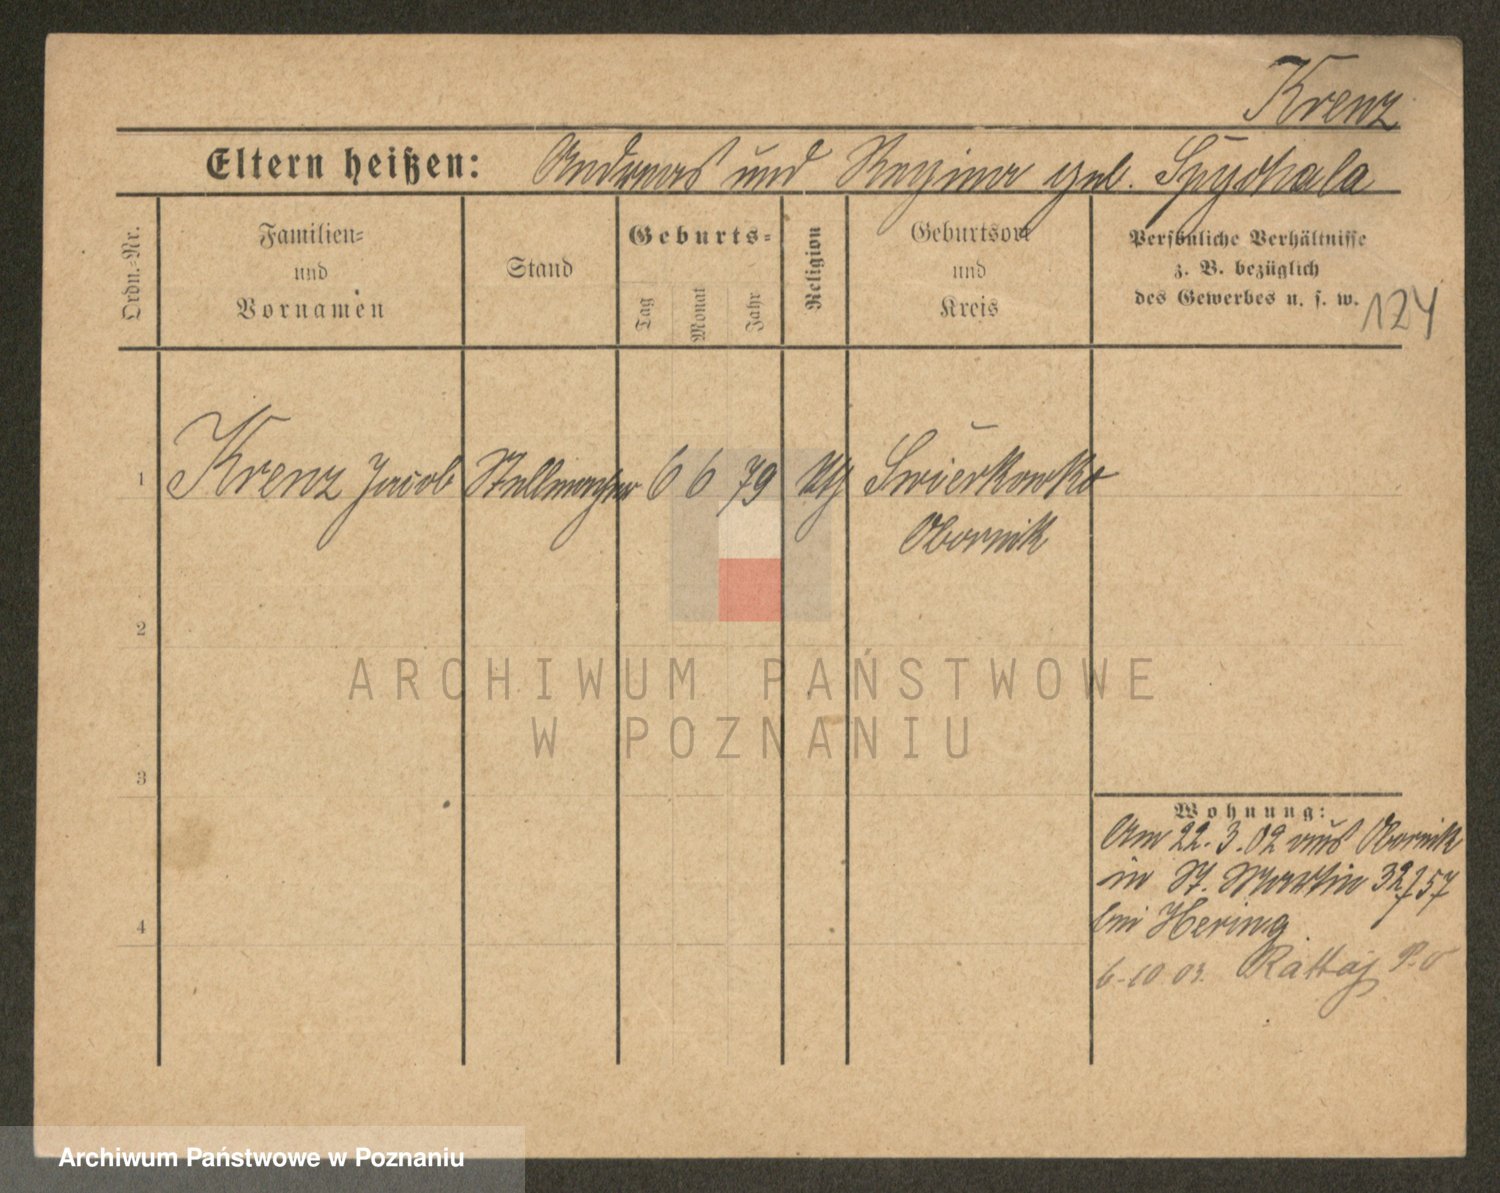 Krenz
Eltern heißen: Andreas und Regina geb. Spychala
Ordn.=Nr.
Familien=
und
Vornamen
Stand
Geburts=
Tag
Monat
Jahr
Religion
Geburtsort
und
Kreis
Persönliche Verhältnisse
z. B. bezüglich
des Gewerbes u. s. w.
124
1 Krenz Jacob Stellmacher 6 6 79 kth Swierkowko
Obornik
2
3
4
Wohnung:
Am 22.3.02 aus Obornik
in St. Martin 32/57
bei Hering
6-10 03. Rattaj
ARCHIWUM PAŃSTWOWE
W POZNANIU
Archiwum Państwowe w Poznaniu